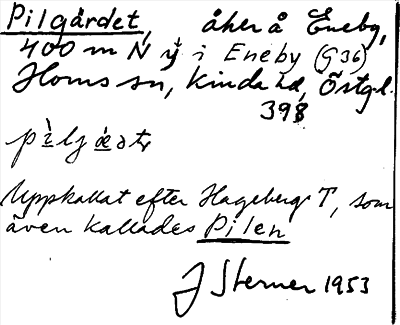 Pilgärdet, åker å Eneby,
400 m N i Eneby (G36)
Horns sn, Kinda hd, Östgl.
398
Uppkallat efter Hageberg T, som
även kallades Pilen
J Sterner 1953